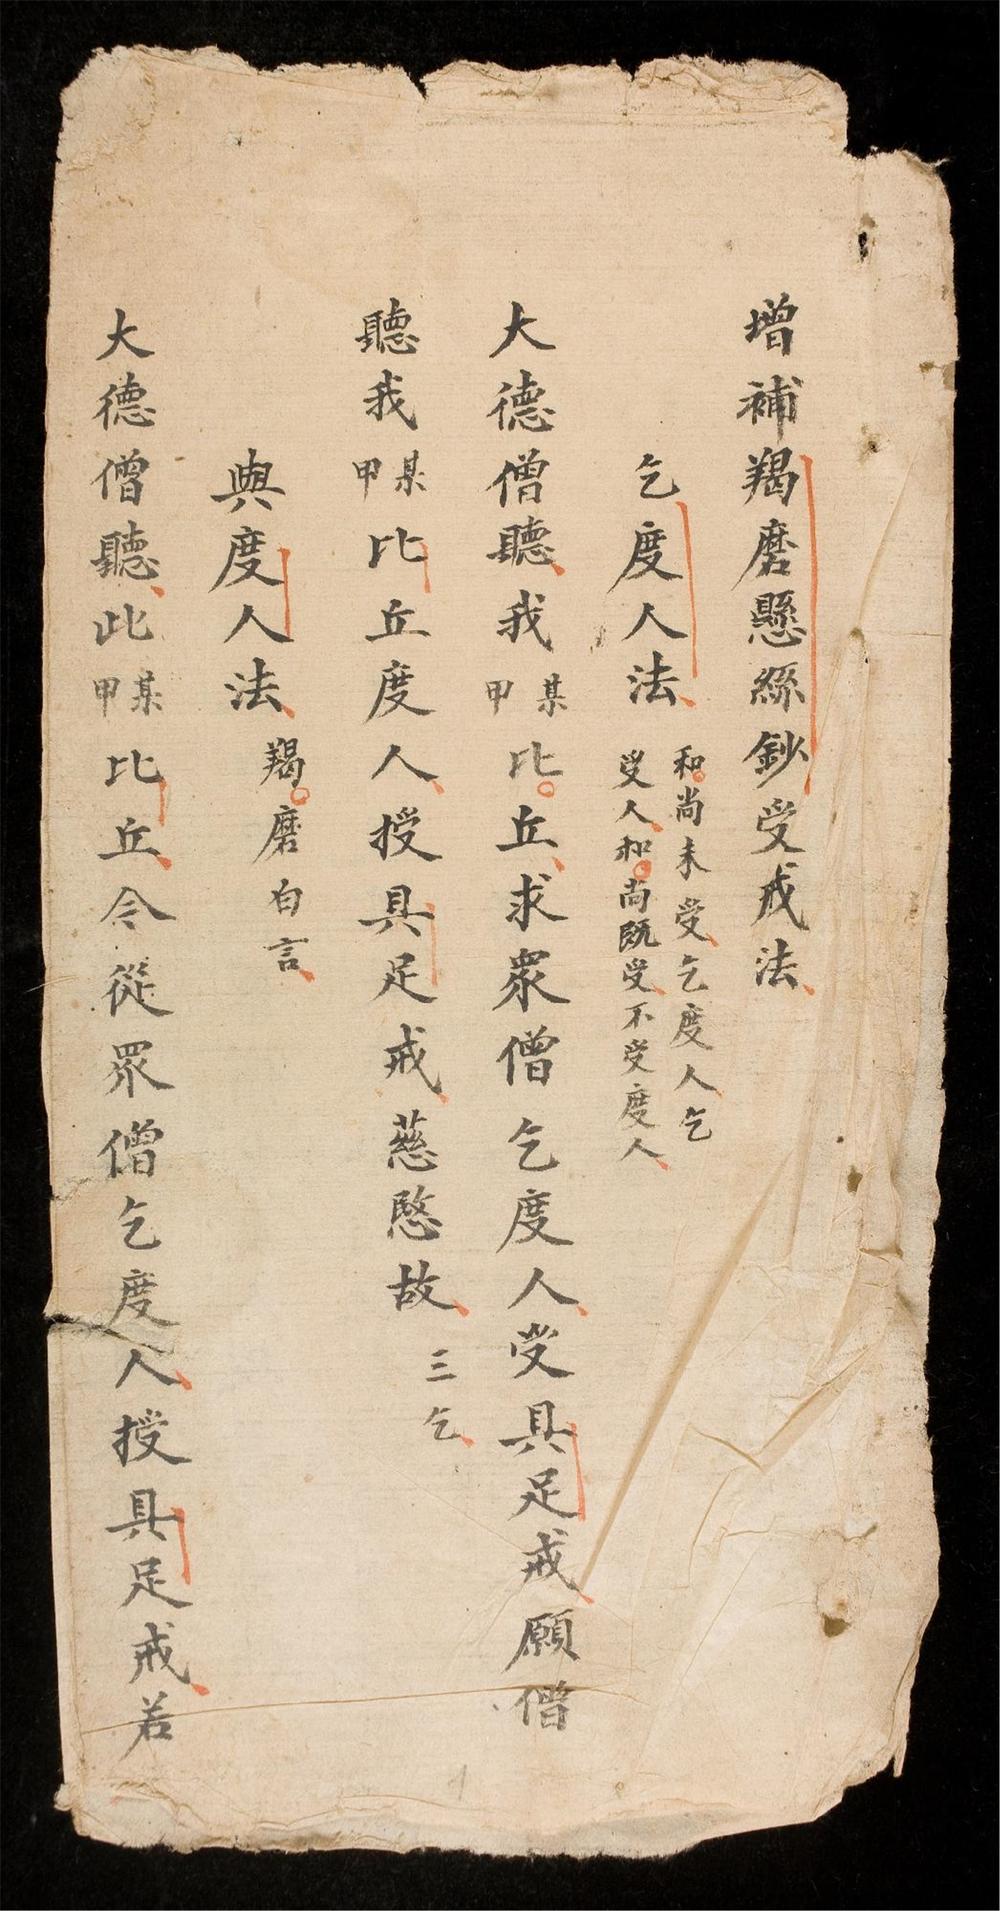 增補羯磨懸絲鈔受戒法
乞度人法
和尚未受乞度人乞
受人和尚既受不受度人
大德僧聽我某甲比丘求眾僧乞度人受具足戒願僧
聽我某甲比丘度人授具足戒慈愍故三乞
與度人法羯磨白言
大德僧聽此某甲比丘令從眾僧乞度人授具足戒若